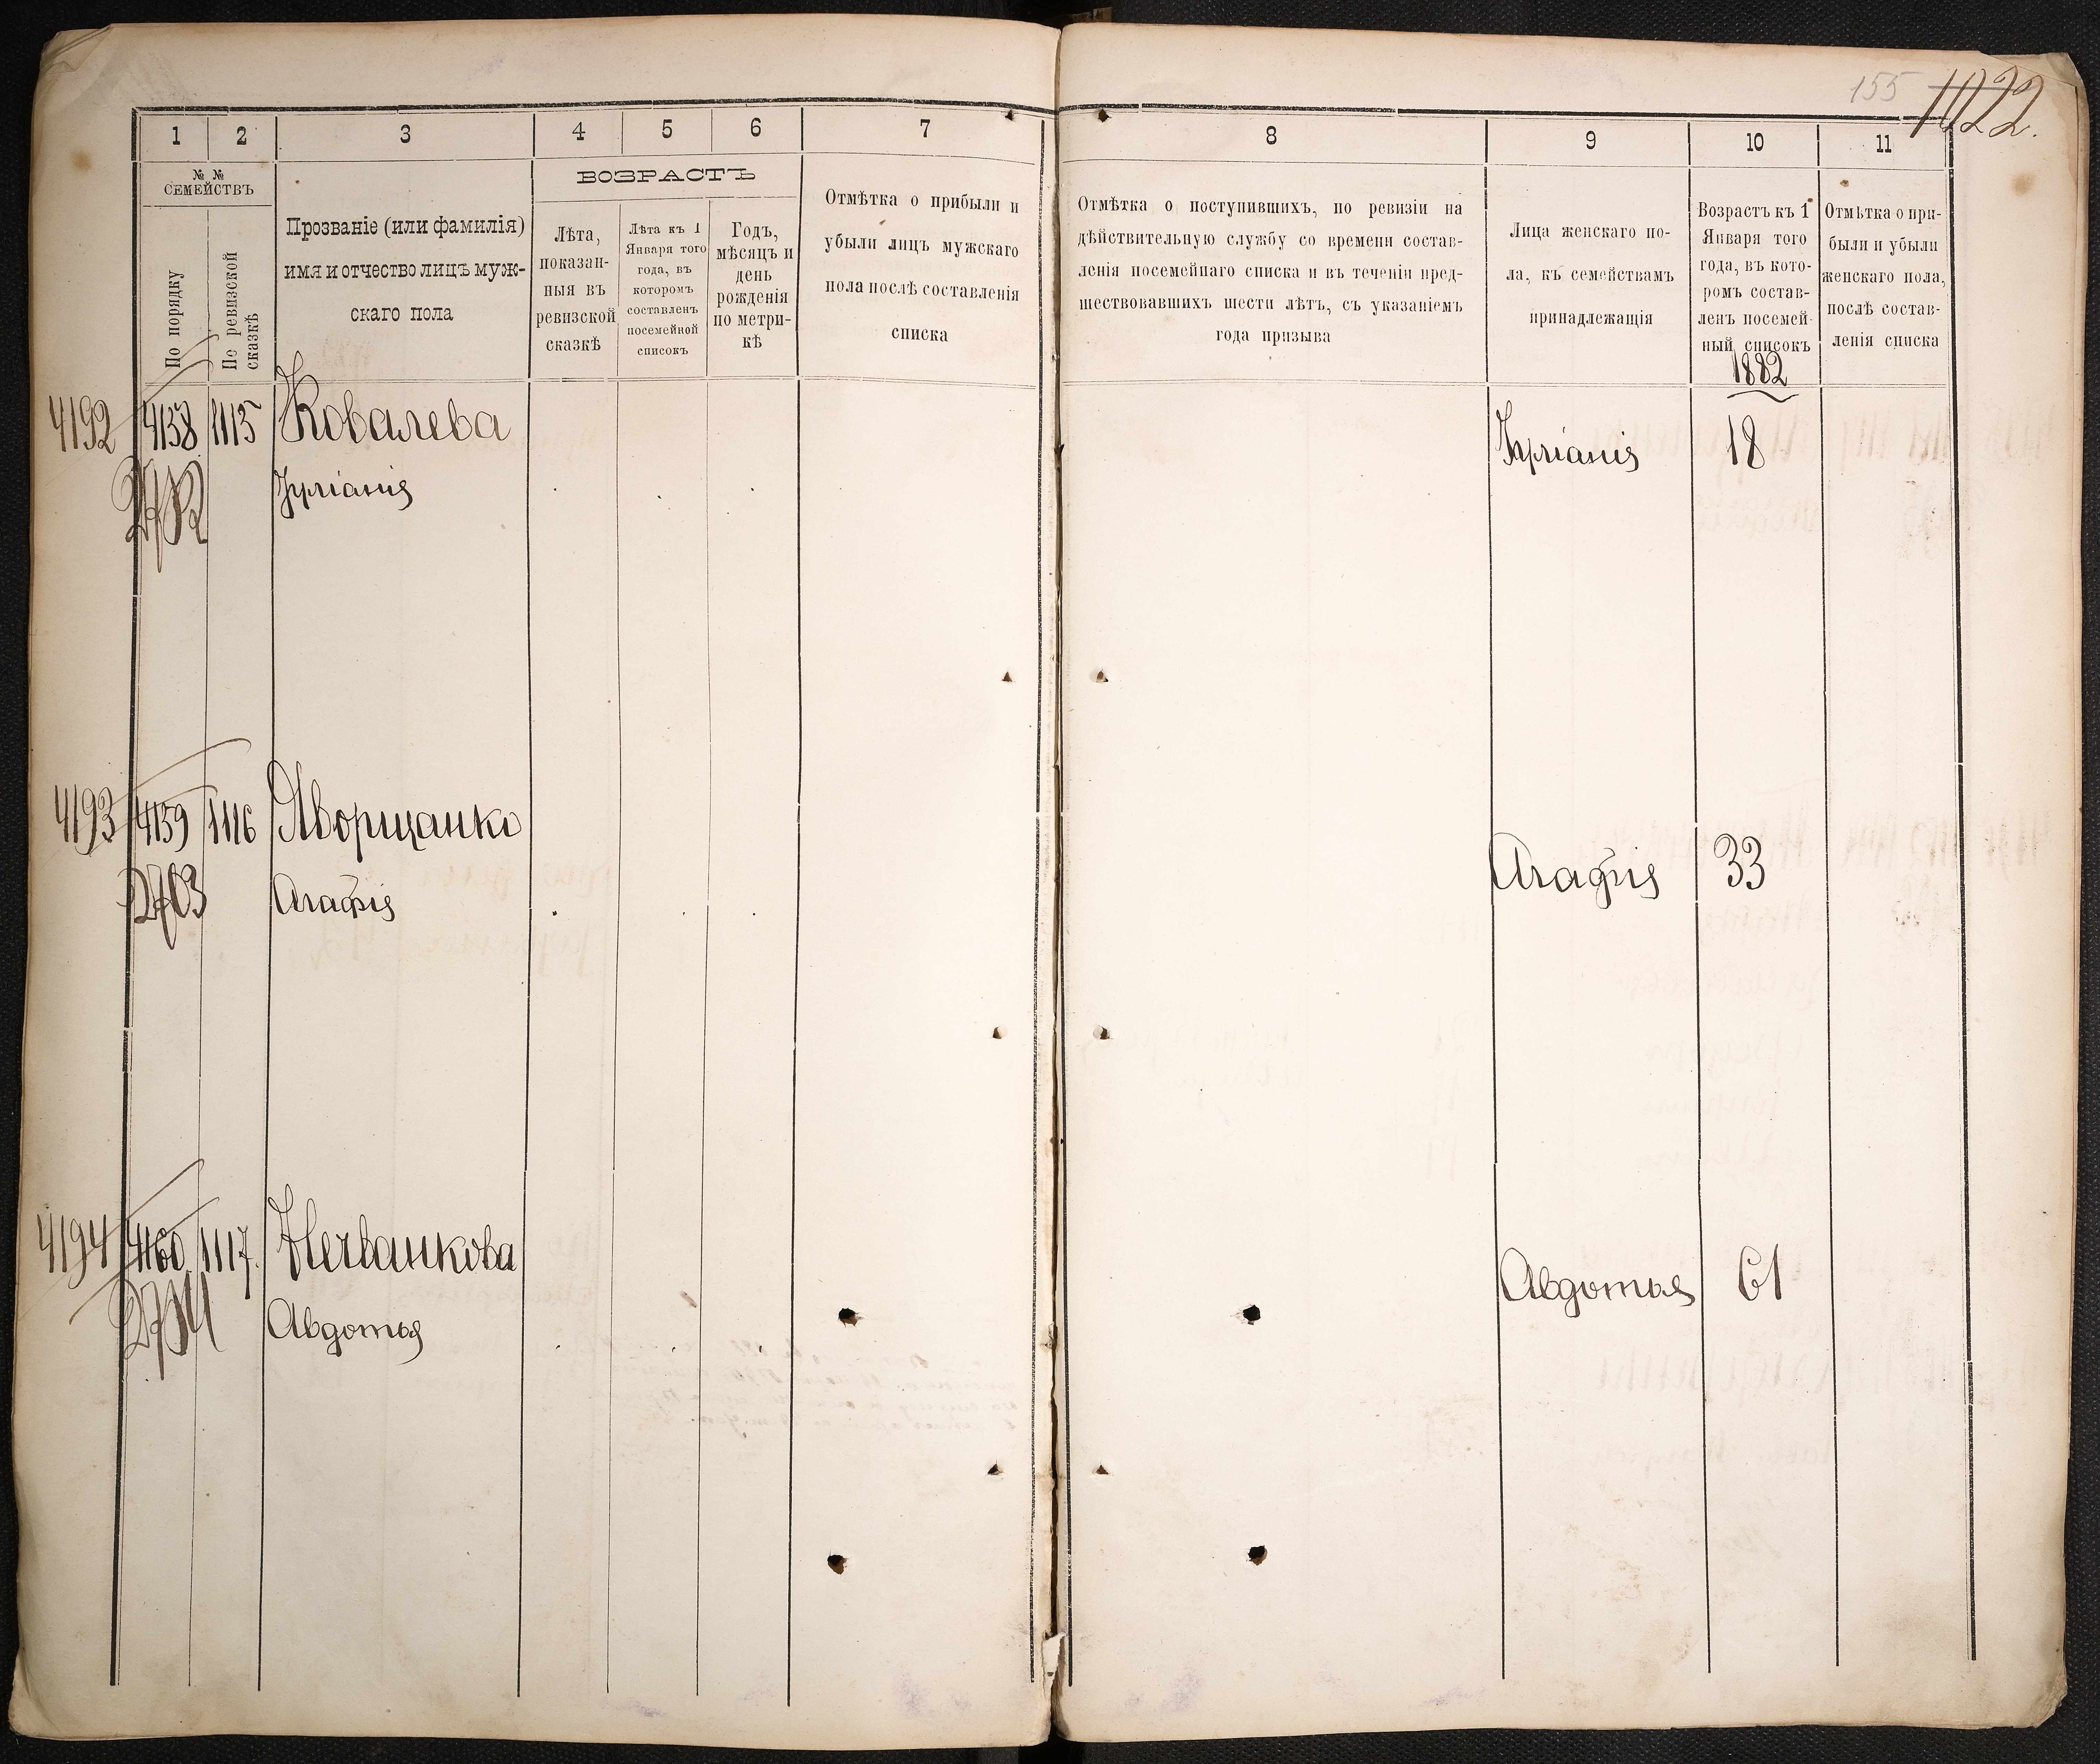 155 1022.
1 2 3 4 5 6 7 8 9 10 11
№ №
СЕМЕЙСТВЪ
По порядку
По ревизской
сказкѣ
Прозваніе (или фамилія)
имя и отчество лицъ муж-
скаго пола
ВОЗРАСТЪ
Лѣта,
показан-
ныя въ
ревизской
сказкѣ
Лѣта къ 1
Января того
года, въ
которомъ
составленъ
посемейной
списокъ
Годъ,
мѣсяцъ и
день
рожденія
по метри-
кѣ
Отмѣтка о прибыли и
убыли лицъ мужскаго
пола послѣ составленія
списка
Отмѣтка о поступившихъ, по ревизіи на
дѣйствительную службу со времени состав-
ленія посемейнаго списка и въ теченіи пред-
шествовавшихъ шести лѣтъ, съ указаніемъ
года призыва
Лица женскаго по-
ла, къ семействамъ
принадлежащія
Возрастъ къ 1
Января того
года, въ кото-
ромъ состав-
ленъ посемей-
ный списокъ
1882
Отмѣтка о при-
были и убыли
женскаго пола,
послѣ состав-
ленія списка
4192 4158 1115 Ковалева
Іуліанія
Іуліанія 18
4193 4159 1116 Яворщанко
2703 Агафія
Агафія 33
4194 4160 1117.
2704 Авдотья
Авдотья 61